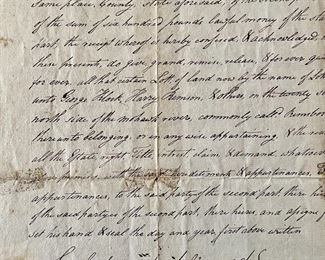 Same place, County, State aforesaid, of the
of the sum of six hundred pounds lawful money of the
part, the receipt whereof is hereby confessed & acknowledged,
these presents, do give, grant, remise, release, & for ever
for ever, all that certain Lott of land now by the name of Lott
unto George Klock, Harry Fremion, & others, on the twenty
north side of the mohawk river, commonly called
thereunto belonging, or in any wise appertaining. & the
all the Estate, right, Title, interest, claim & demand, whatsoever
premises, with the hereditaments & appurtenances
appurtenances, to the said party of the second part, there
of the said party of the second part, there heirs, and assigns
set his hand & seal the day and year, first above written